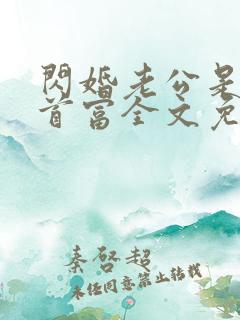 閃婚老公是
首富全文免
秦啓超
未经同意禁止转载